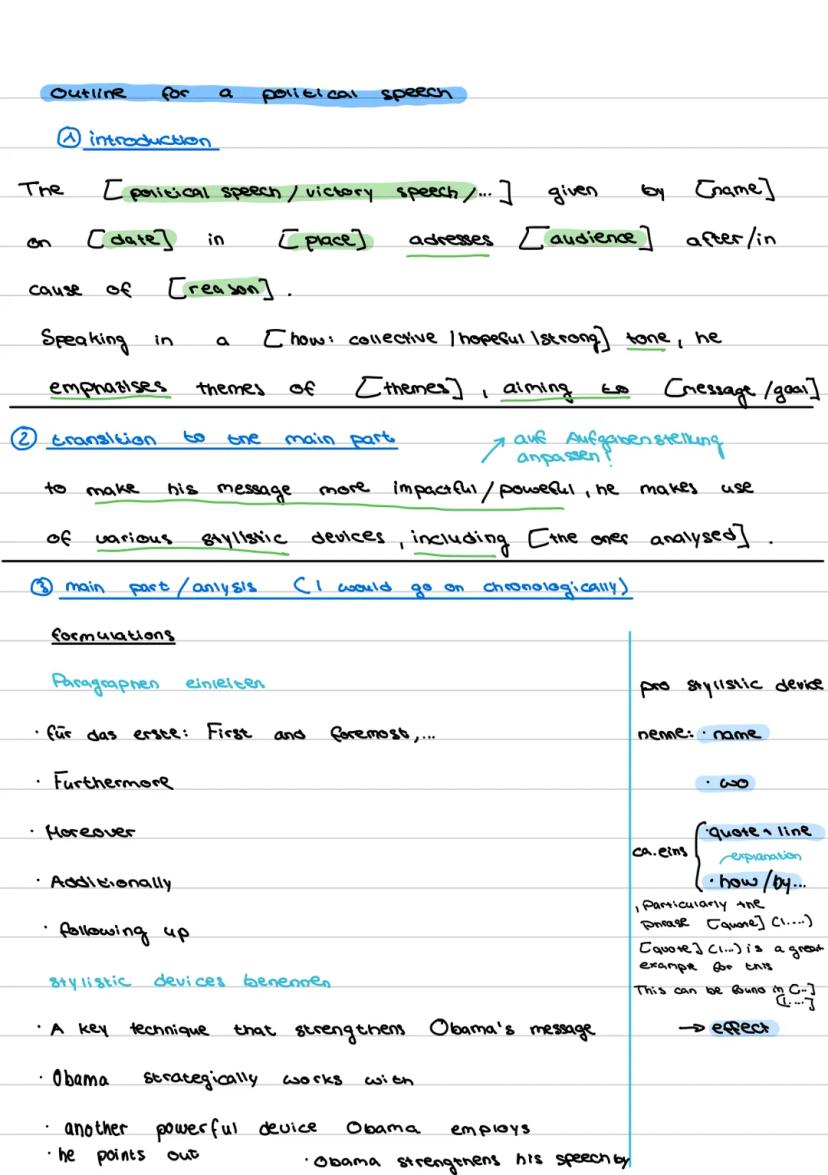 outline for a political speech
① introduction
The [political speech / victory speech /...] given by [name]
on [date] in [place] adresses [audience] after/in
cause of [reason].
Speaking in a [how: collective | hopeful | strong] tone, he
emphasises themes of [themes], aiming to [message/goal]
② transition to the main part
↗ auf Aufgabenstellung
anpassen!
to make his message more impactful / poweful, he makes use
of various stylistic devices, including [the ones analysed].
③ main part / anlysis (I would go on chronologically)
formulations
Paragraphen einleiten
· für das erste: First and foremost,...
· Furthermore
· Moreover
· Additionally
· following up
stylistic devices benennen
· A key technique that strengthens Obama's message
· Obama strategically works with
· another powerful device Obama employs
· he points out
· Obama strengthens his speech by
pro stylistic device
nenne: · name
· wo
ca. eins { · quote + line
explanation
· how / by...
, particularly the
phrase [quote] (l....)
[quote] (l...) is a great
example for this
This can be found in [..]
[l....]
→ effect